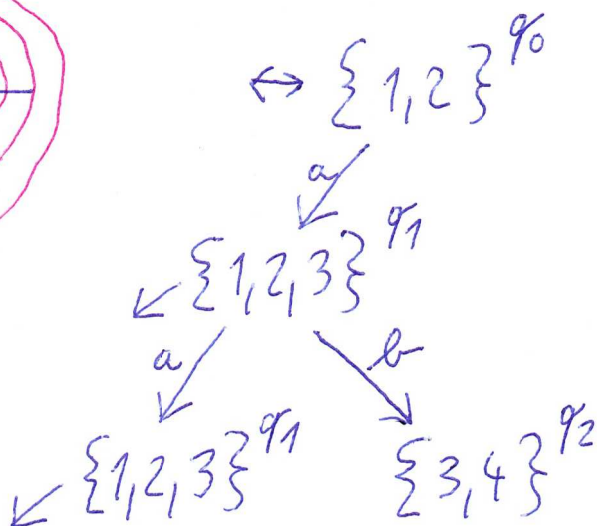 ↔ {1,2} q0
a
{1,2,3} q1
a b
{1,2,3} q1 {3,4} q2